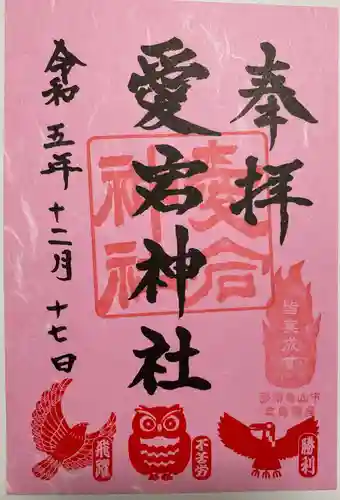 奉拝
愛宕神社
令和五年十二月十七日
愛宕
神社
勝利
不苦労
飛躍